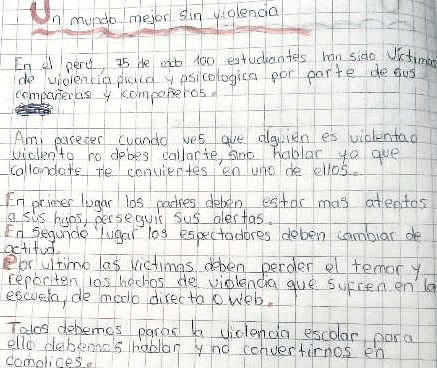 Un mundo mejor sin violencia
En el perú, 75 de cada 100 estudiantes han sido víctimas
de violencia física y psicologica por parte de sus
compañeras y compañeros.
Ami parecer cuando ves que alguien es violentado
violento no debes callarte, sino hablar ya que
callandote te conviertes en uno de ellos.
En primer lugar los padres deben estar mas atentos
a sus hijos, perseguir sus alertas.
En segundo lugar los espectadores deben cambiar de
actitud.
Por ultimo las victimas deben perder el temor y
reporten los hechos de violencia que sufren en la
escuela, de modo directo o web.
Todos debemos parar la violencia escolar, para
ello debemos hablar y no convertirnos en
complices.